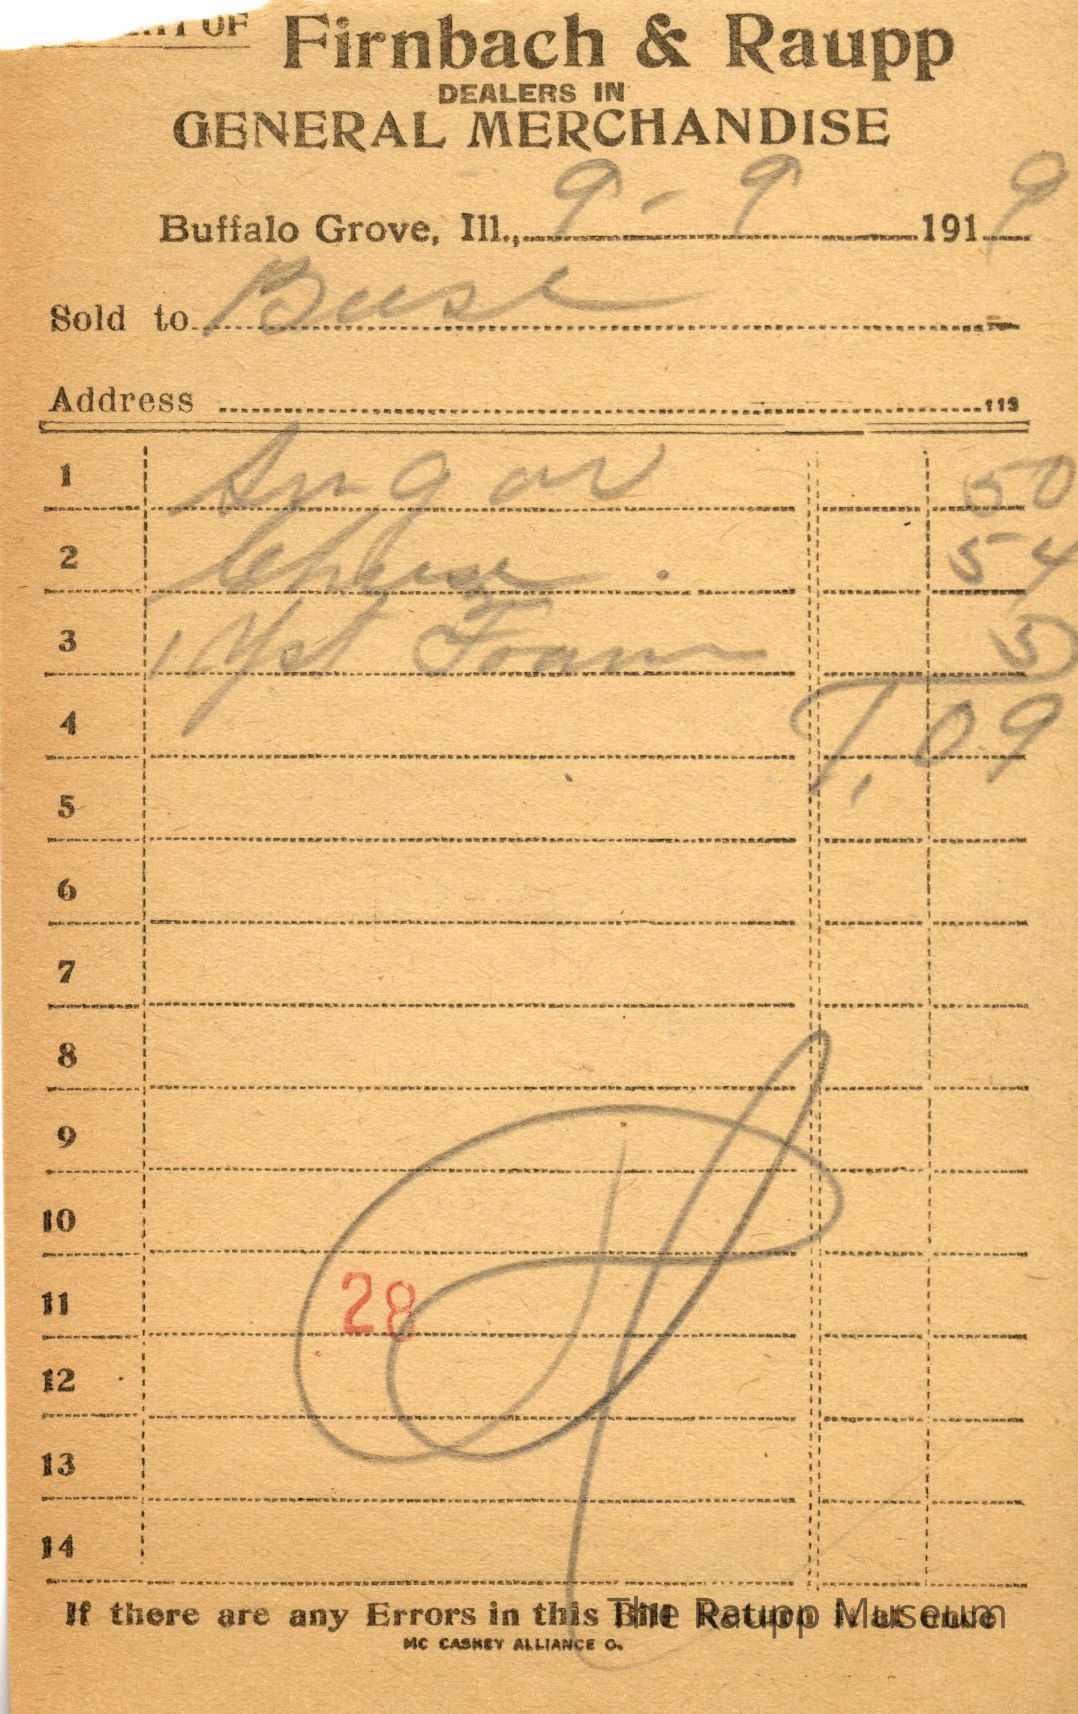 OF Firnbach & Raupp
DEALERS IN
GENERAL MERCHANDISE
Buffalo Grove, Ill., 9 - 9 1919
Sold to Buse
Address 113
1 Sugar 50
2 Cheese 54
3 1 Yst Foam 5
4 1.09
5
6
7
8
9
10
11 28
12
13
14
If there are any Errors in this Bill Return it at once
The Raupp Museum
MC CASKEY ALLIANCE O.